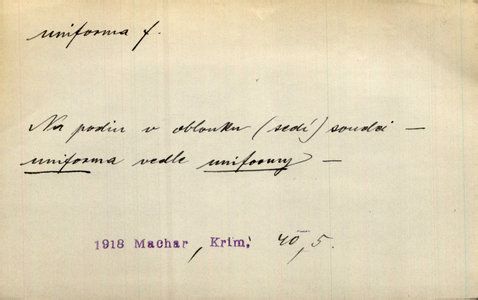 uniforma f.
Na podiu v oblouku (sedí) soudci —
uniforma vedle uniformy —
1918 Machar, Krim. 40, 5.